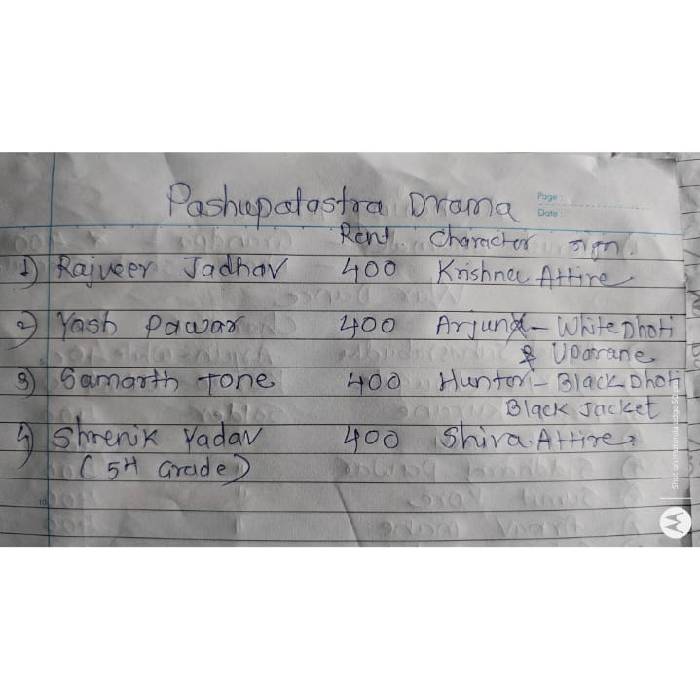 Pashupatastra Drama
Page:
Date:
Rent Charactor
1) Rajveer Jadhav 400 Krishna Attire.
2) Yash Pawar 400 Arjun - White Dhoti
& Uparane
3) Samarth Tone 400 Hunter - Black Dhoti
Black Jacket
4) Shrenik Yadav 400 Shiva Attire.
(5th Grade)